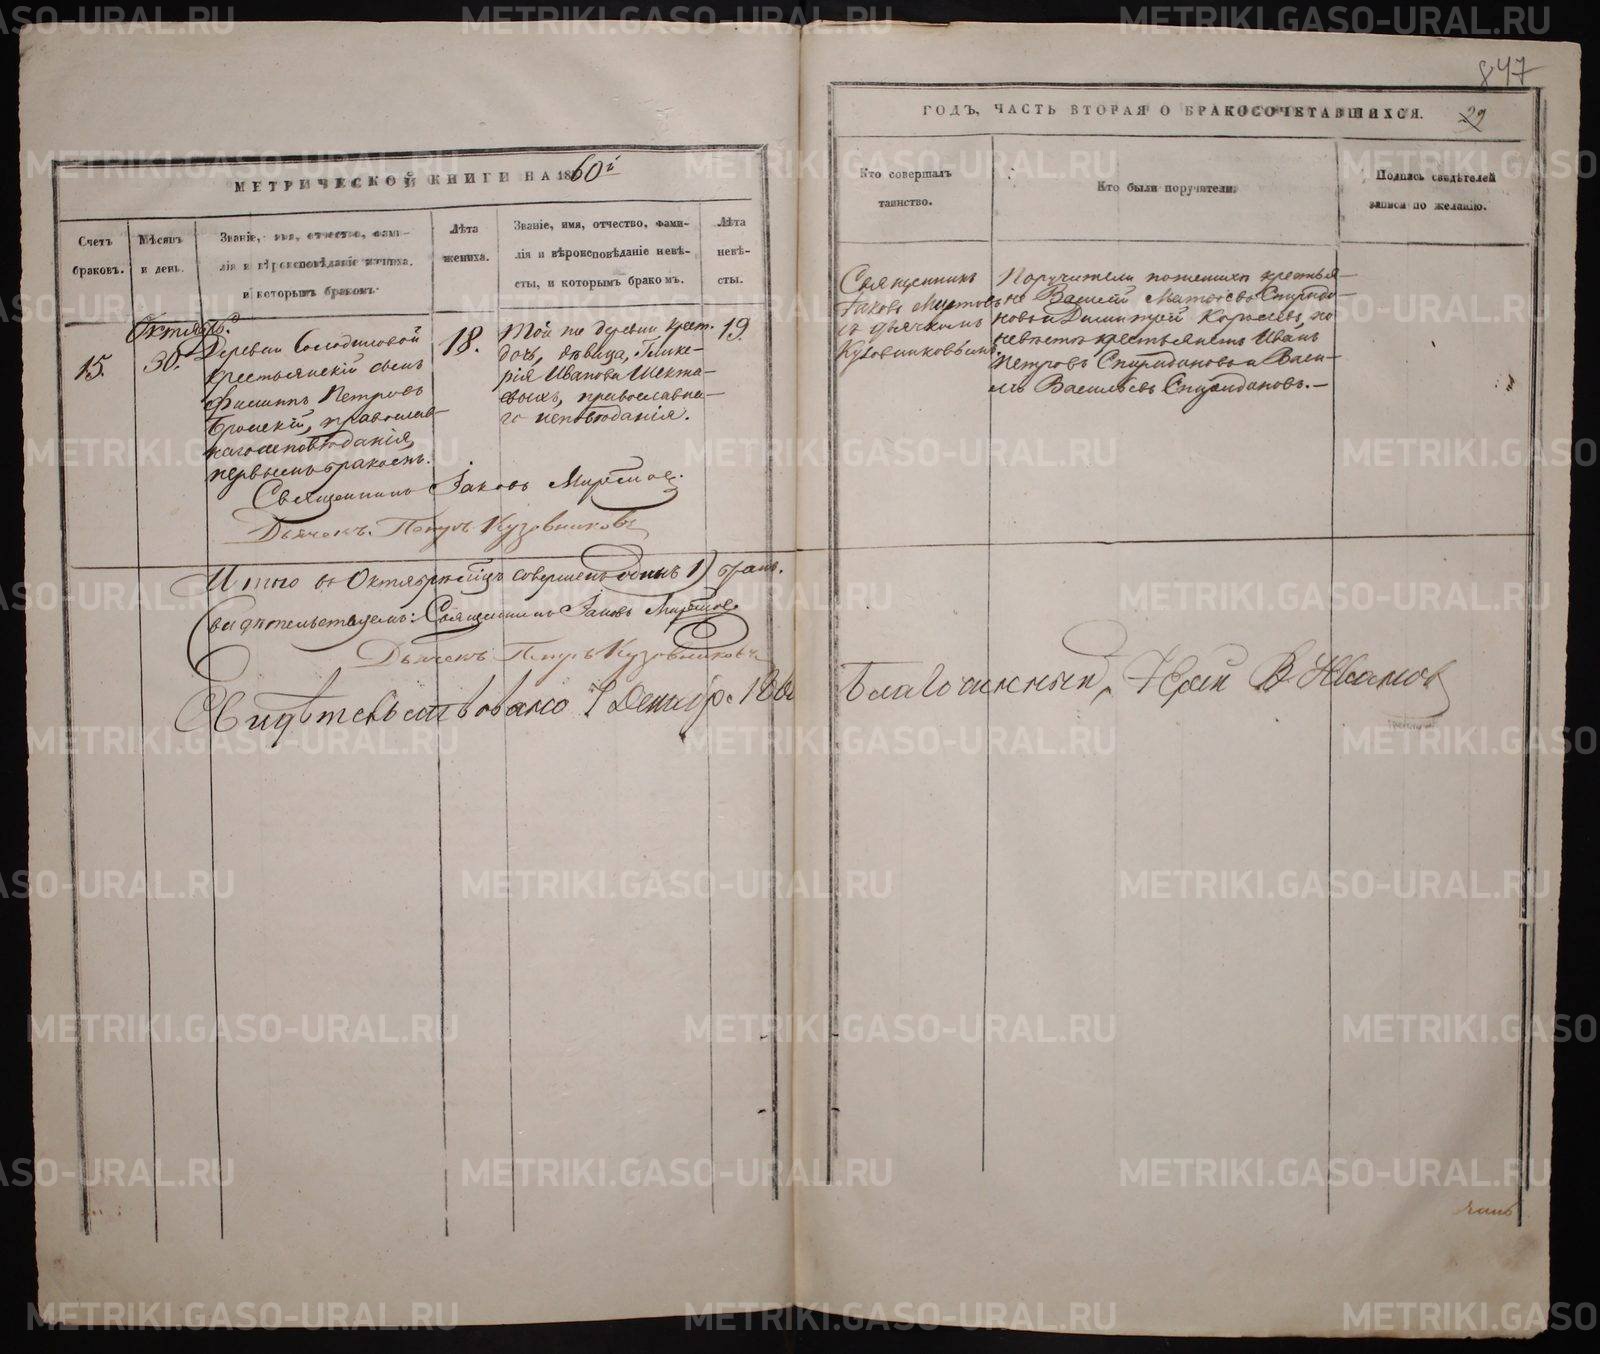 847
МЕТРИЧЕСКОЙ КНИГИ НА 1860й
ГОДЪ, ЧАСТЬ ВТОРАЯ О БРАКОСОЧЕТАВШИХСЯ.
29
Счетъ браковъ.
Мѣсяцъ и день.
Званіе, имя, отчество, фами-
лія и вѣроисповѣданіе жениха,
и которымъ бракомъ.
Лѣта жениха.
Званіе, имя, отчество, фами-
лія и вѣроисповѣданіе невѣ-
сты, и которымъ бракомъ.
Лѣта невѣ-
сты.
Кто совершалъ
таинство.
Кто были поручители.
Подпись свидѣтелей
записи по желанію.
Октябрь.
15.
30.
Деревни Солодиловой
крестьянскій сынъ
Филиппъ Петровъ
православ-
наго исповѣданія,
первымъ бракомъ.
18.
Той же деревни крест.
дочь, дѣвица, Глике-
рія Иванова
православна-
го исповѣданія.
19
Священникъ
Іаковъ
съ дьячкомъ
Кузовниковымъ.
Поручители по женихѣ крестья-
не Василій Матѳеевъ Спиридо-
новъ и Димитрій Королевъ, по
невѣстѣ крестьянинъ Иванъ
Петровъ Спиридоновъ и Васи-
лій Васильевъ Спиридоновъ.—
Священникъ Іаковъ
Дьячекъ Петръ Кузовниковъ
Итого въ Октябрѣ м̃цѣ совершенъ одинъ 1) бракъ.
Свидѣтельствуемъ: Священникъ Іаковъ
Дьячекъ Петръ Кузовниковъ
Свидѣтельствовано Декабр. 1860
Благочинный, Іерей В Ивановъ
METRIKI.GASO-URAL.RU